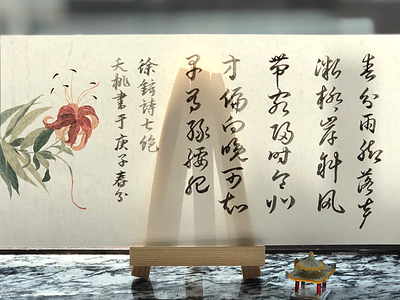 春分雨脚落声
微柳岸斜风
带客归时令北
方偏向晚可知
早有绿腰肥
徐铉詩七绝
夭桃書于庚子春分